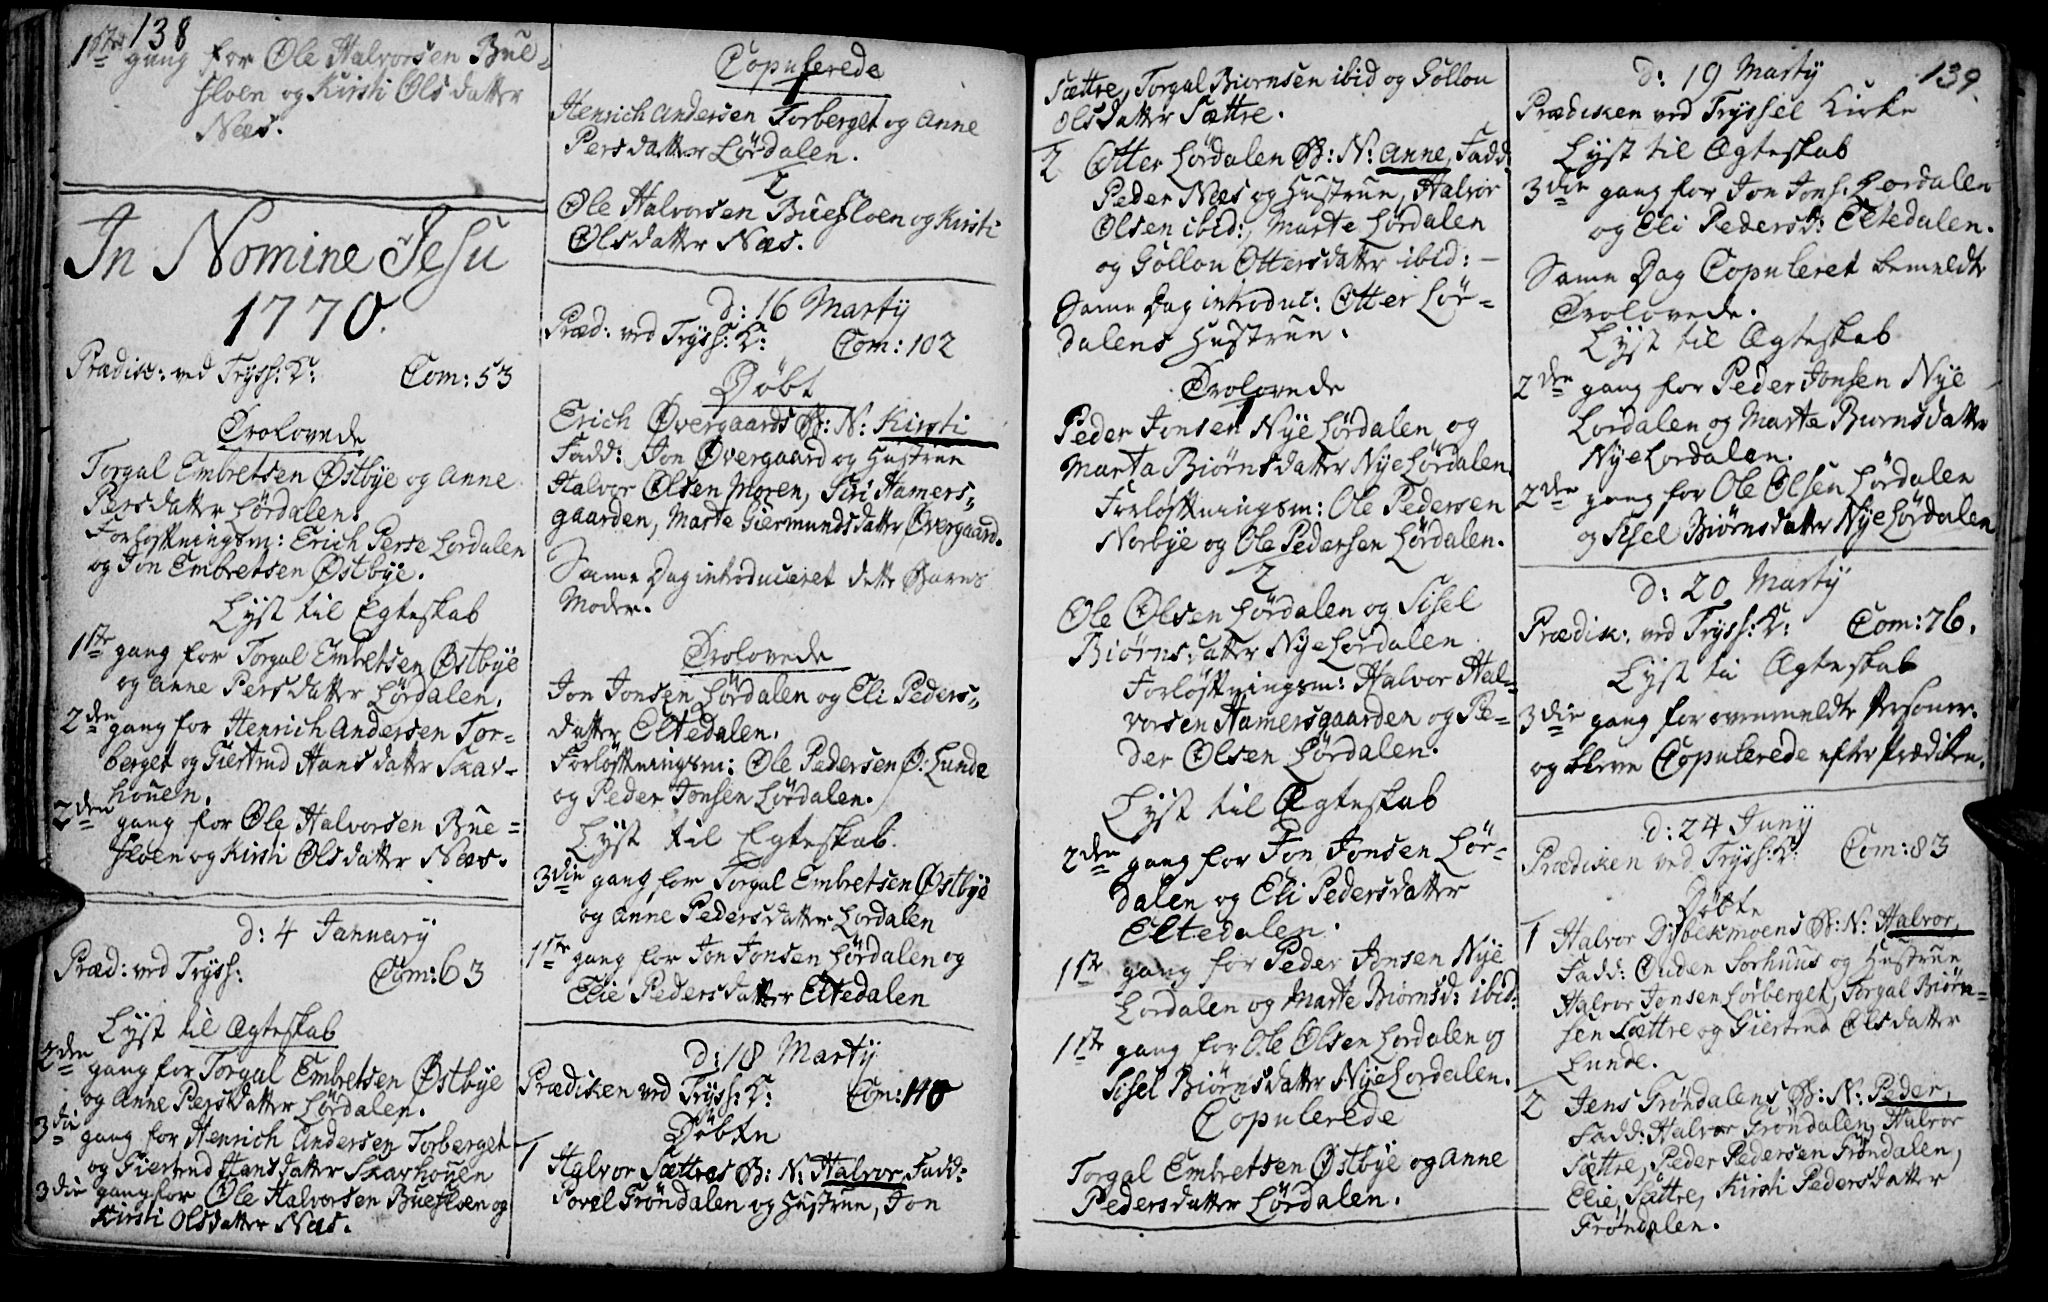 138
1ste gang for Ole Halvorsen Bue-
floen og Kirsti Olsdatter
Næs.
In Nomine Jesu
1770.
Prædik: ved Tryss: K: Com: 53
Trolovede
Torgal Embretsen Østbye og Anne
Persdatter Lørdalen.
Forløftningsm: Erich Perse Lørdalen
og Jon Embretsen Østbye.
Lyst til Egteskab
1ste gang for Torgal Embretsen Østbye
og Anne Persdatter Lørdalen.
2den gang for Henrich Andersen Tor-
berget og Giertrud Hansdatter Skav-
houen.
2den gang for Ole Halvorsen Bue-
floen og Kirsti Olsdatter Næs.
d: 4 January
Præd: ved Tryss: Com: 63
Lyst til Ægteskab
2den gang for Torgal Embretsen Østbye
og Anne Persdatter Lørdalen.
3die gang for Henrich Andersen Torberget
og Giertrud Hansdatter Skavhouen
3die gang for Ole Halvorsen Buefloen og
Kirsti Olsdatter Næs.
Copulerede
1
Henrich Andersen Torberget og Anne
Persdatter Lørdalen.
2
Ole Halvorsen Buefloen og Kirsti
Olsdatter Næs.
d: 16 Marty
Præd: ved Tryss: K: Com: 102
Døbt
Erich Øvergaards B: N: Kirsti
Fadd: Jon Øvergaard og Hustrue
Halvor Olsen Moren, Siri Hamers-
gaarden, Marte Giermundsdatter Øvergaard.
Same Dag introduceret dette Barns
Moder.
Trolovede
Jon Jonsen Lørdalen og Eli Peders-
datter Eltedalen.
Forløftningsm: Ole Pedersen Ø: Lunde
og Peder Jonsen Lørdalen.
Lyst til Egteskab.
3die gang for Torgal Embretsen Østbye
og Anne Pedersdatter Lordalen
1ste gang for Jon Jonsen Lørdalen og
Elie Pedersdatter Eltedalen
d: 18 Marty
Prædiken ved Tryss: K: Com: 110
Døbte
1 Halvor Sættres B: N: Halvor, Fadd:
Povel Grøndalen og Hustrue, Jon
Sættre, Torgal Biornsen ibid og Gollou
Olsdatter Sættre.
2 Otter Lørdalen B: N: Anne, Fadd:
Peder Næs og Hustrue, Halvor
Olsen ibid:, Marte Lørdalen
og Gollou Ottersdatter ibid: —
Same Dag introduc: Otter Lør-
dalens Hustrue.
Trolovede
1
Peder Jonsen Nye Lørdalen og
Marta Biørnsdatter Nye Lørdalen
Forløftningsm: Ole Pedersen
Norbye og Ole Pedersen Lørdalen.
2
Ole Olsen Lørdalen og Sisel
Biørnsdatter Nye Lordalen
Forløftningsm: Halvor Hal-
vorsen Hamersgaarden og Pe-
der Olsen Lørdalen.
Lyst til Ægteskab
2den gang for Jon Jonsen Lør-
dalen og Eli Pedersdatter
Eltedalen.
1ste gang for Peder Jonsen Nye
Lordalen og Marte Biornsd: ibid:
1ste gang for Ole Olsen Lordalen og
Sisel Biørnsdatter Nye Lordalen.
Copulerede
Torgal Embretsen Østbye og Anne
Pedersdatter Lørdalen.
139.
d: 19 Marty
Prædiken ved Tryssel Kirke
Lyst til Ægteskab
3die gang for Jon Jons: Lordalen
og Eli Pedersd: Eltedalen.
Same Dag Copuleret bemeldte
Trolovede.
Lyst til Ægteskab
2den gang for Peder Jonsen Nye
Lordalen og Marte Biornsdatter
Nye Lordalen.
2den gang for Ole Olsen Lørdalen
og Sisel Biørnsdatter Nye Lørdalen
d: 20 Marty
Prædik: ved Tryss: K: Com: 76.
Lyst til Ægteskab
3die gang for ovenmeldte Personer.
og bleve Copulerede efter Prædiken.
d: 24 Juny
Prædiken ved Tryss: K: Com: 83
Døbte
1 Halvor Dybekmoens B: N: Halvor,
Fadd: Ouden Sorhuus og Hustrue
Halvor Jonsen Lørberget, Torgal Biørn-
sen Sættre og Giertrud Olsdatter
Lunde.
2 Jens Grøndalens B: N: Peder,
Fadd: Halvor Grøndalen, Halvor
Sættre, Peder Pedersen Grøndalen,
Elie Sættre, Kirsti Pedersdatter
Grøndalen.